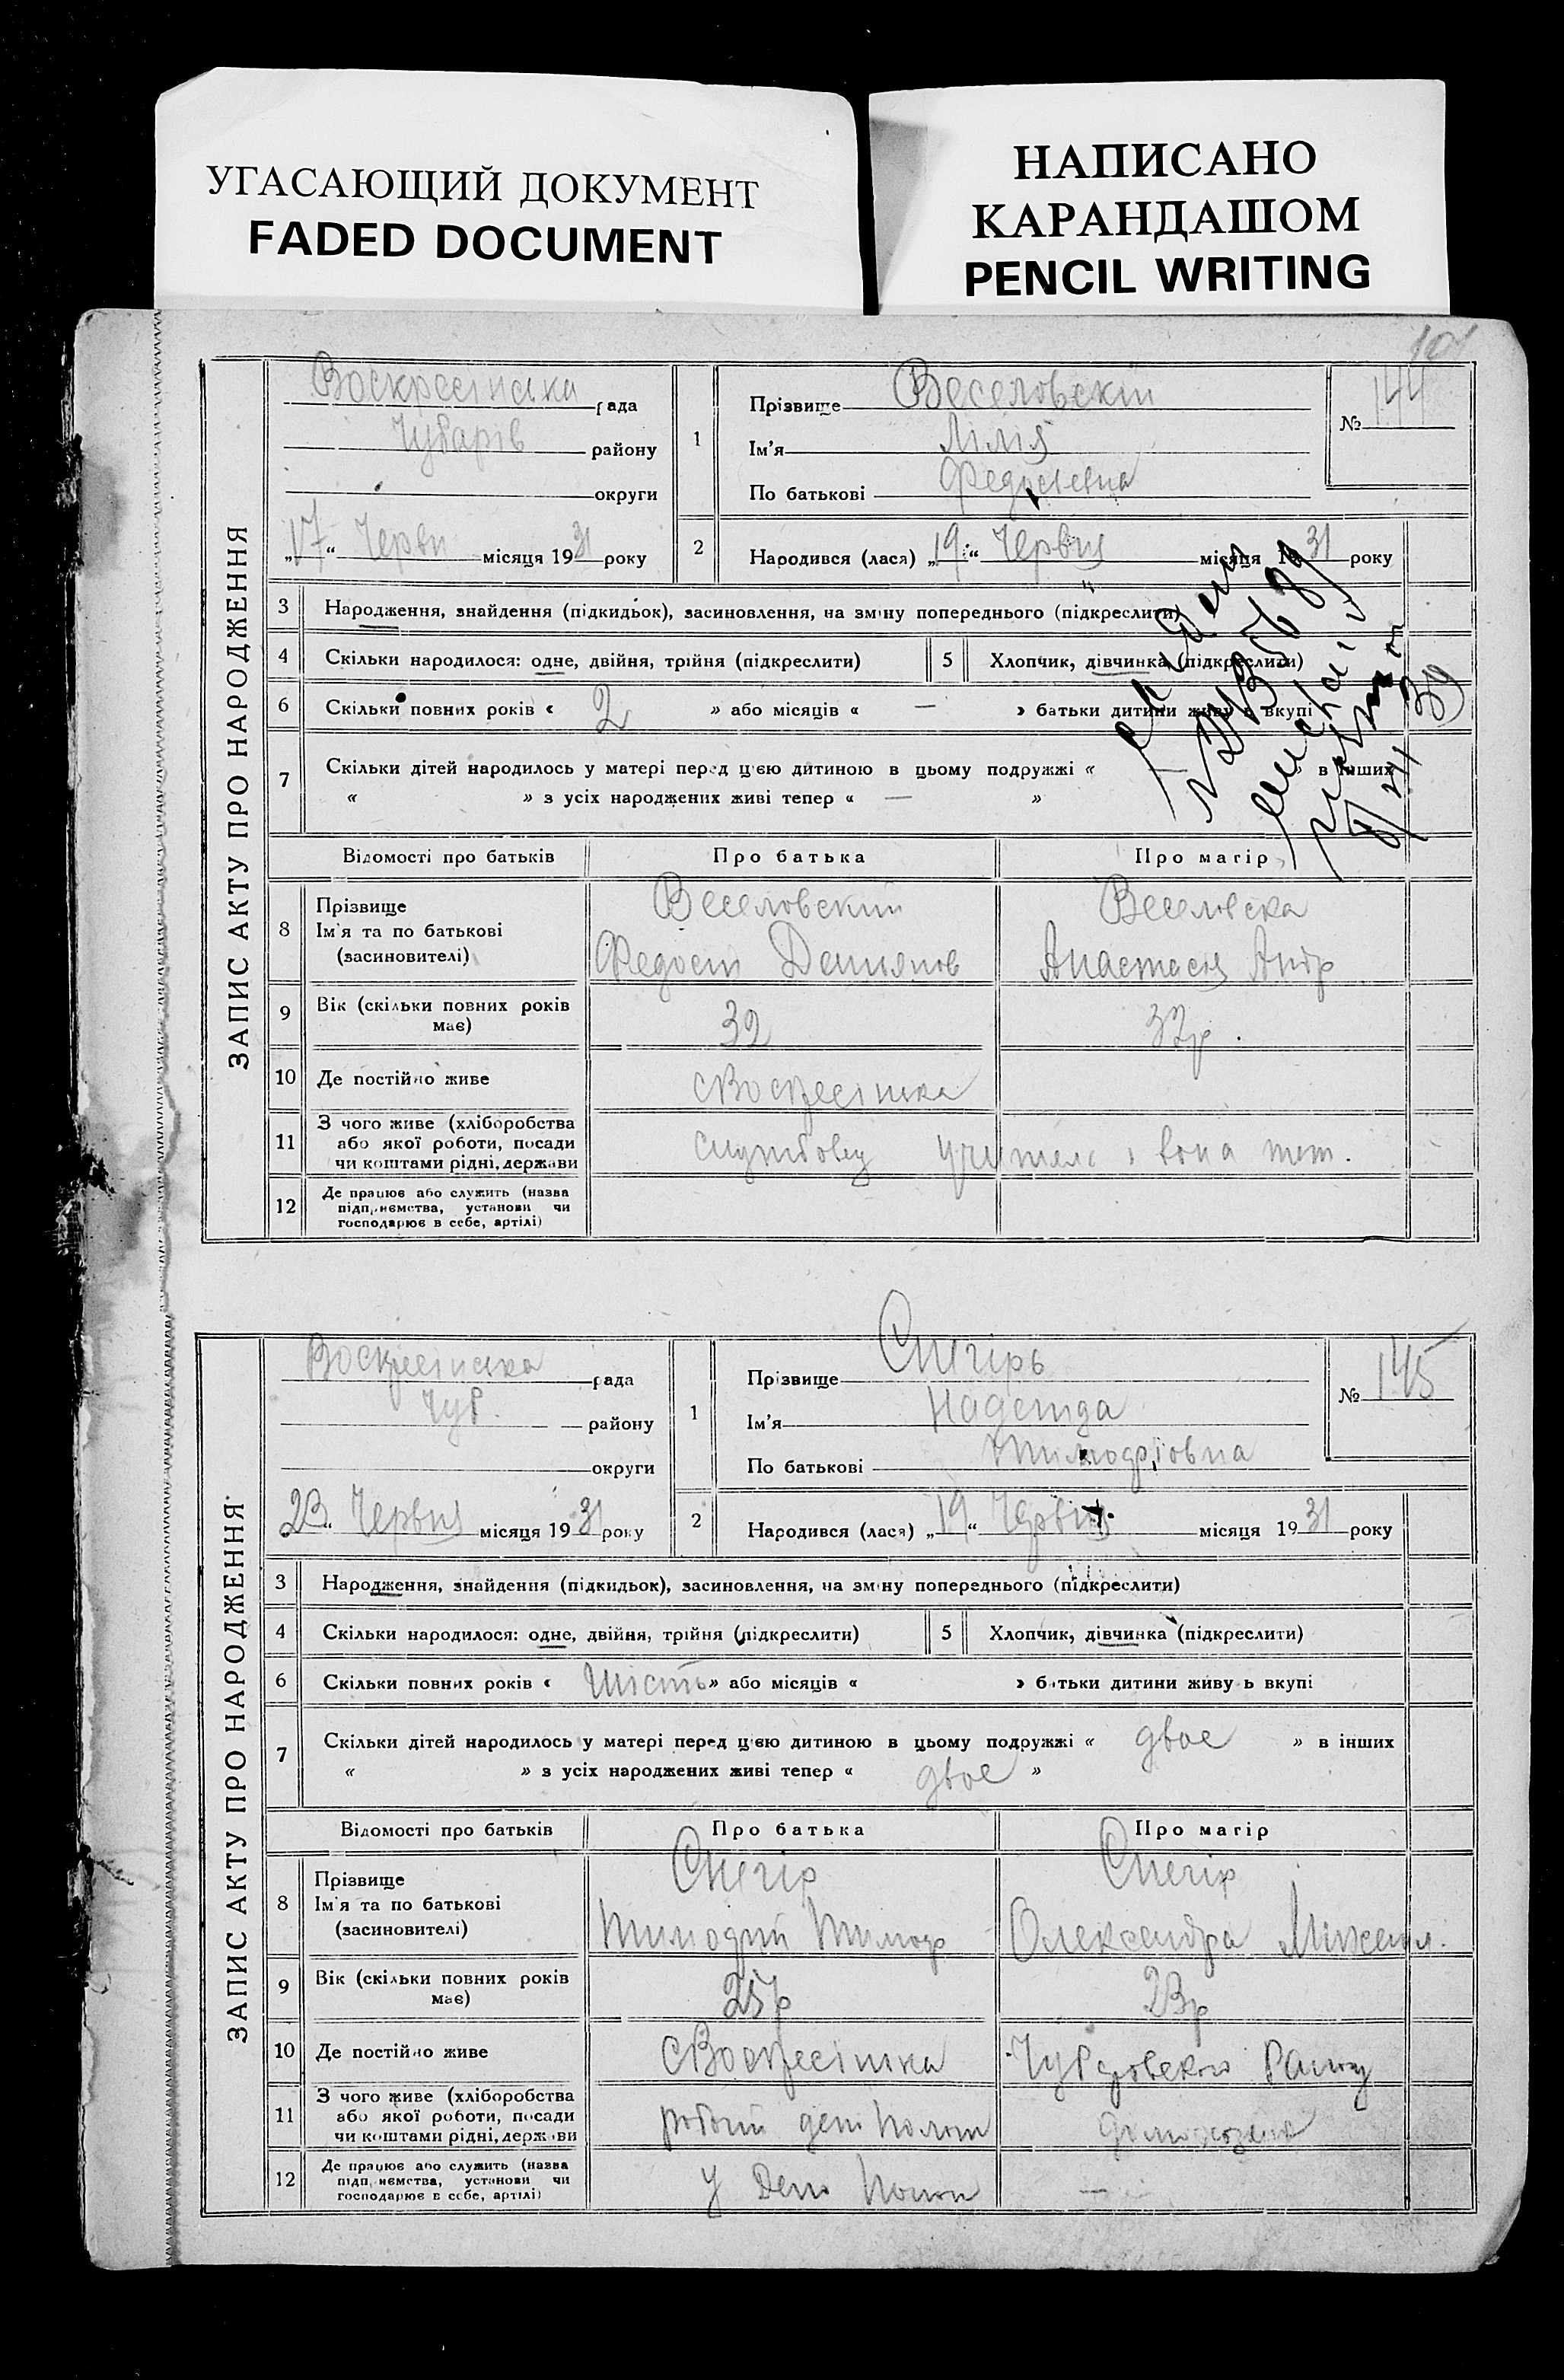 УГАСАЮЩИЙ ДОКУМЕНТ
FADED DOCUMENT
НАПИСАНО
КАРАНДАШОМ
PENCIL WRITING
101
ЗАПИС АКТУ ПРО НАРОДЖЕННЯ
Воскресінська рада
Чубарів району
округи
„17“ Черв місяця 1931 року
1
Прізвище Веселовский
Ім'я Лілія
По батькові
№ 144
2
Народився (лася) „19“ Червня місяця 1931 року
3 Народження, знайдення (підкидьок), засиновлення, на зміну попереднього (підкреслити)
4 Скільки народилося: одне, двійня, трійня (підкреслити)
5 Хлопчик, дівчинка (підкреслити)
6 Скільки повних років « 2 » або місяців « — » батьки дитини живуть вкупі
7 Скільки дітей народилось у матері перед цією дитиною в цьому подружжі « — » в інших
« » з усіх народжених живі тепер « — »
Відомості про батьків Про батька Про матір
8 Прізвище
Ім'я та по батькові
(засиновителі)
Веселовский
Федосий Демянов
Веселовска
Анастасія Андр
9 Вік (скільки повних років
має)
32
32р.
10 Де постійно живе
с Воскресінка
11 З чого живе (хліборобства
або якої роботи, посади
чи коштами рідні, держави
службовец учитель і вона теж.
12 Де працює або служить (назва
підприємства, установи чи
господарює в себе, артілі)
ЗАПИС АКТУ ПРО НАРОДЖЕННЯ
Воскресінська рада
Чуб. району
округи
„23“ Червня місяця 1931 року
1
Прізвище Снегірь
Ім'я Надежда
По батькові
№ 145
2
Народився (лася) „19“ Червня місяця 1931 року
3 Народження, знайдення (підкидьок), засиновлення, на зміну попереднього (підкреслити)
4 Скільки народилося: одне, двійня, трійня (підкреслити)
5 Хлопчик, дівчинка (підкреслити)
6 Скільки повних років « шість » або місяців « » батьки дитини живуть вкупі
7 Скільки дітей народилось у матері перед цією дитиною в цьому подружжі « двое » в інших
« » з усіх народжених живі тепер « двое »
Відомості про батьків Про батька Про матір
8 Прізвище
Ім'я та по батькові
(засиновителі)
Снегір
Снегір
Олександра Михайл.
9 Вік (скільки повних років
має)
25р
23р
10 Де постійно живе
с Воскресінка
11 З чого живе (хліборобства
або якої роботи, посади
чи коштами рідні, держави
домохозяйка
12 Де працює або служить (назва
підприємства, установи чи
господарює в себе, артілі)
У Депо
—